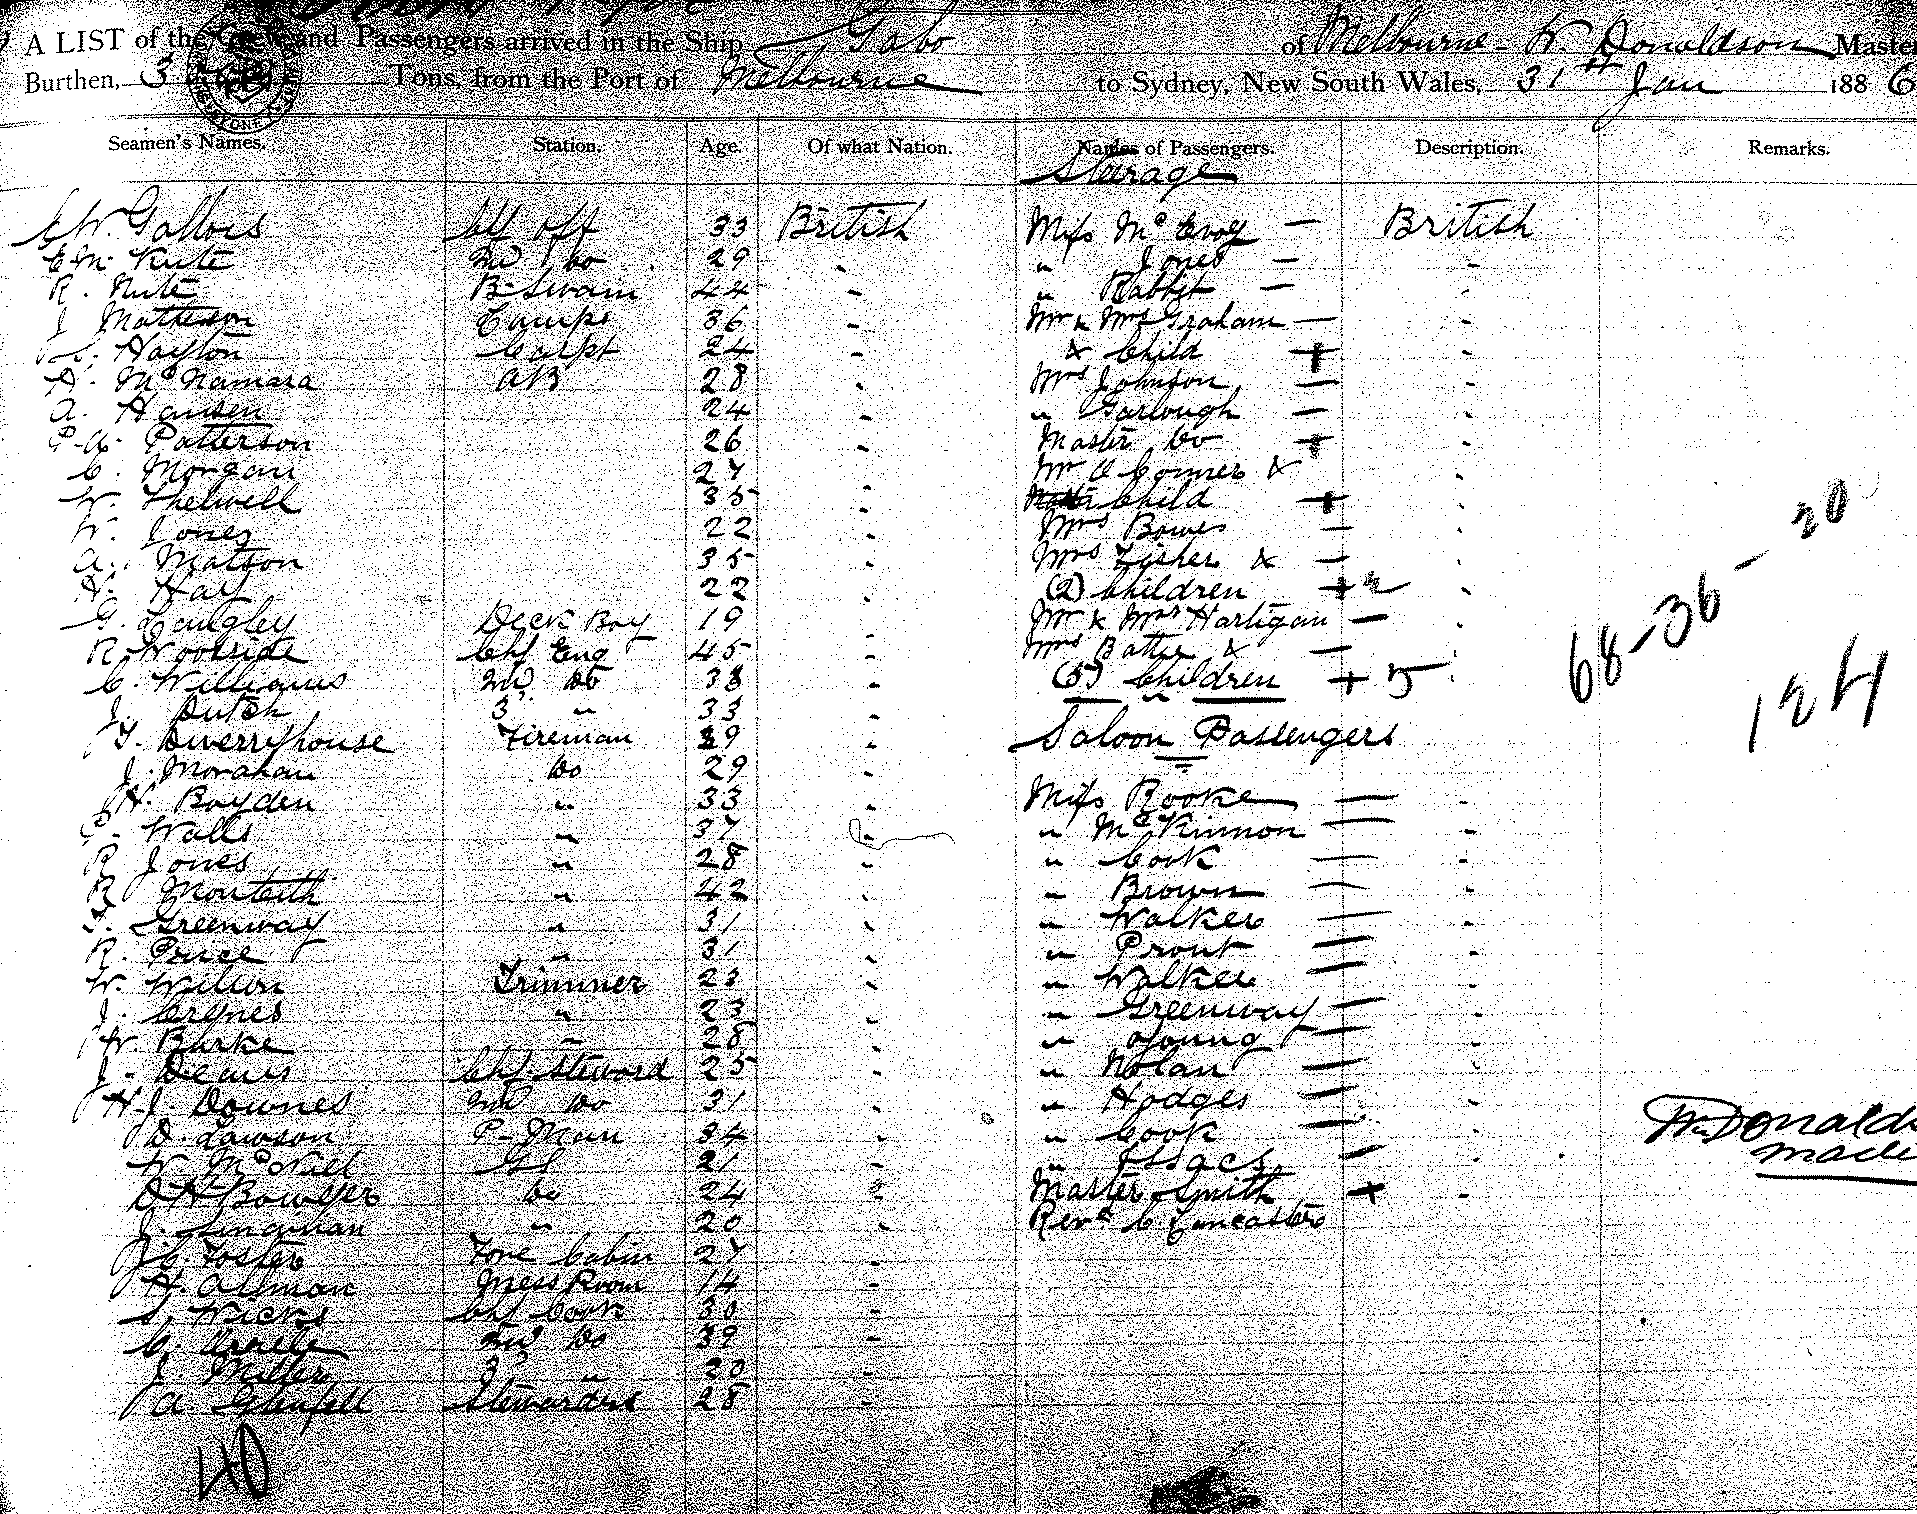 A LIST of the Crew and Passengers arrived in the Ship Gabo of Melbourne - W. Donaldson Master
Burthen, 3 Tons, from the Port of Melbourne to Sydney, New South Wales, 31st Jan 1886
Seamen's Names. Station. Age. Of what Nation. Names of Passengers. Description. Remarks.
Steerage
W. Gallois Chf Off 33 British Miss McEvoy — British
E. M. Kute 2nd Do 29 " " Jones — "
R. Nute B-Swain 44 " " Rabbit — "
J Matheson Lamps 36 " Mr & Mrs Graham — "
Hayton Carpt 24 " & Child + "
McNamara AB 28 " Mrs Johnson — "
A. Hansen 24 " " Garlough — "
P. A. Patterson 26 " Master Do + "
C. Morgan 27 " Mr O Conner & "
W. Thelwell 35 " Child + "
W. Jones 22 " Mrs Bowes — "
A. Matson 35 " Mrs Fisher & — "
H. Hay 22 " (2) Children + 2 "
G. Langley Deck Boy 19 " Mr & Mrs Hartigan — "
R. Woodside Chf Eng 45 " Mrs Battie & — "
C. Williams 2nd Do 38 " (5) Children + 5 "
J. Dutch 3 " 33 "
Saloon Passengers
Fireman 39 "
J. Morahan Do 29 "
H. Boyden " 33 " Miss Rooke — "
P. Walls " 37 " " McKinnon — "
R Jones " 28 " " Cook — "
R Monteith " 42 " " Brown — "
T. Greenway " 31 " " Walker — "
R. Price " 31 " " Prout — "
W. Wilson Trimmer 23 " " Walker — "
J. Crynes " 23 " " Greenway — "
W. Burke " 28 " " Young — "
J. Deans Chf Steward 25 " " Nolan — "
H. J. Downes 2nd Do 31 " " Hodges — "
D. Lawson P-Man 34 " " Cook — "
W. McNeil 21 " " Issacs — "
D H Bowser Do 24 " Master Smith + "
J. Lingman " 20 " Revd C Lancaster
C. Foster Fore Cabin 27 "
H. Allman Mess Room 14 "
S. Wicks Chf Cook 30 "
C. 2nd Do 39 "
J. Miller 3 " 20 "
A. Grenfell Stewardess 28 "
40
68-36-20
124
W. Donaldson